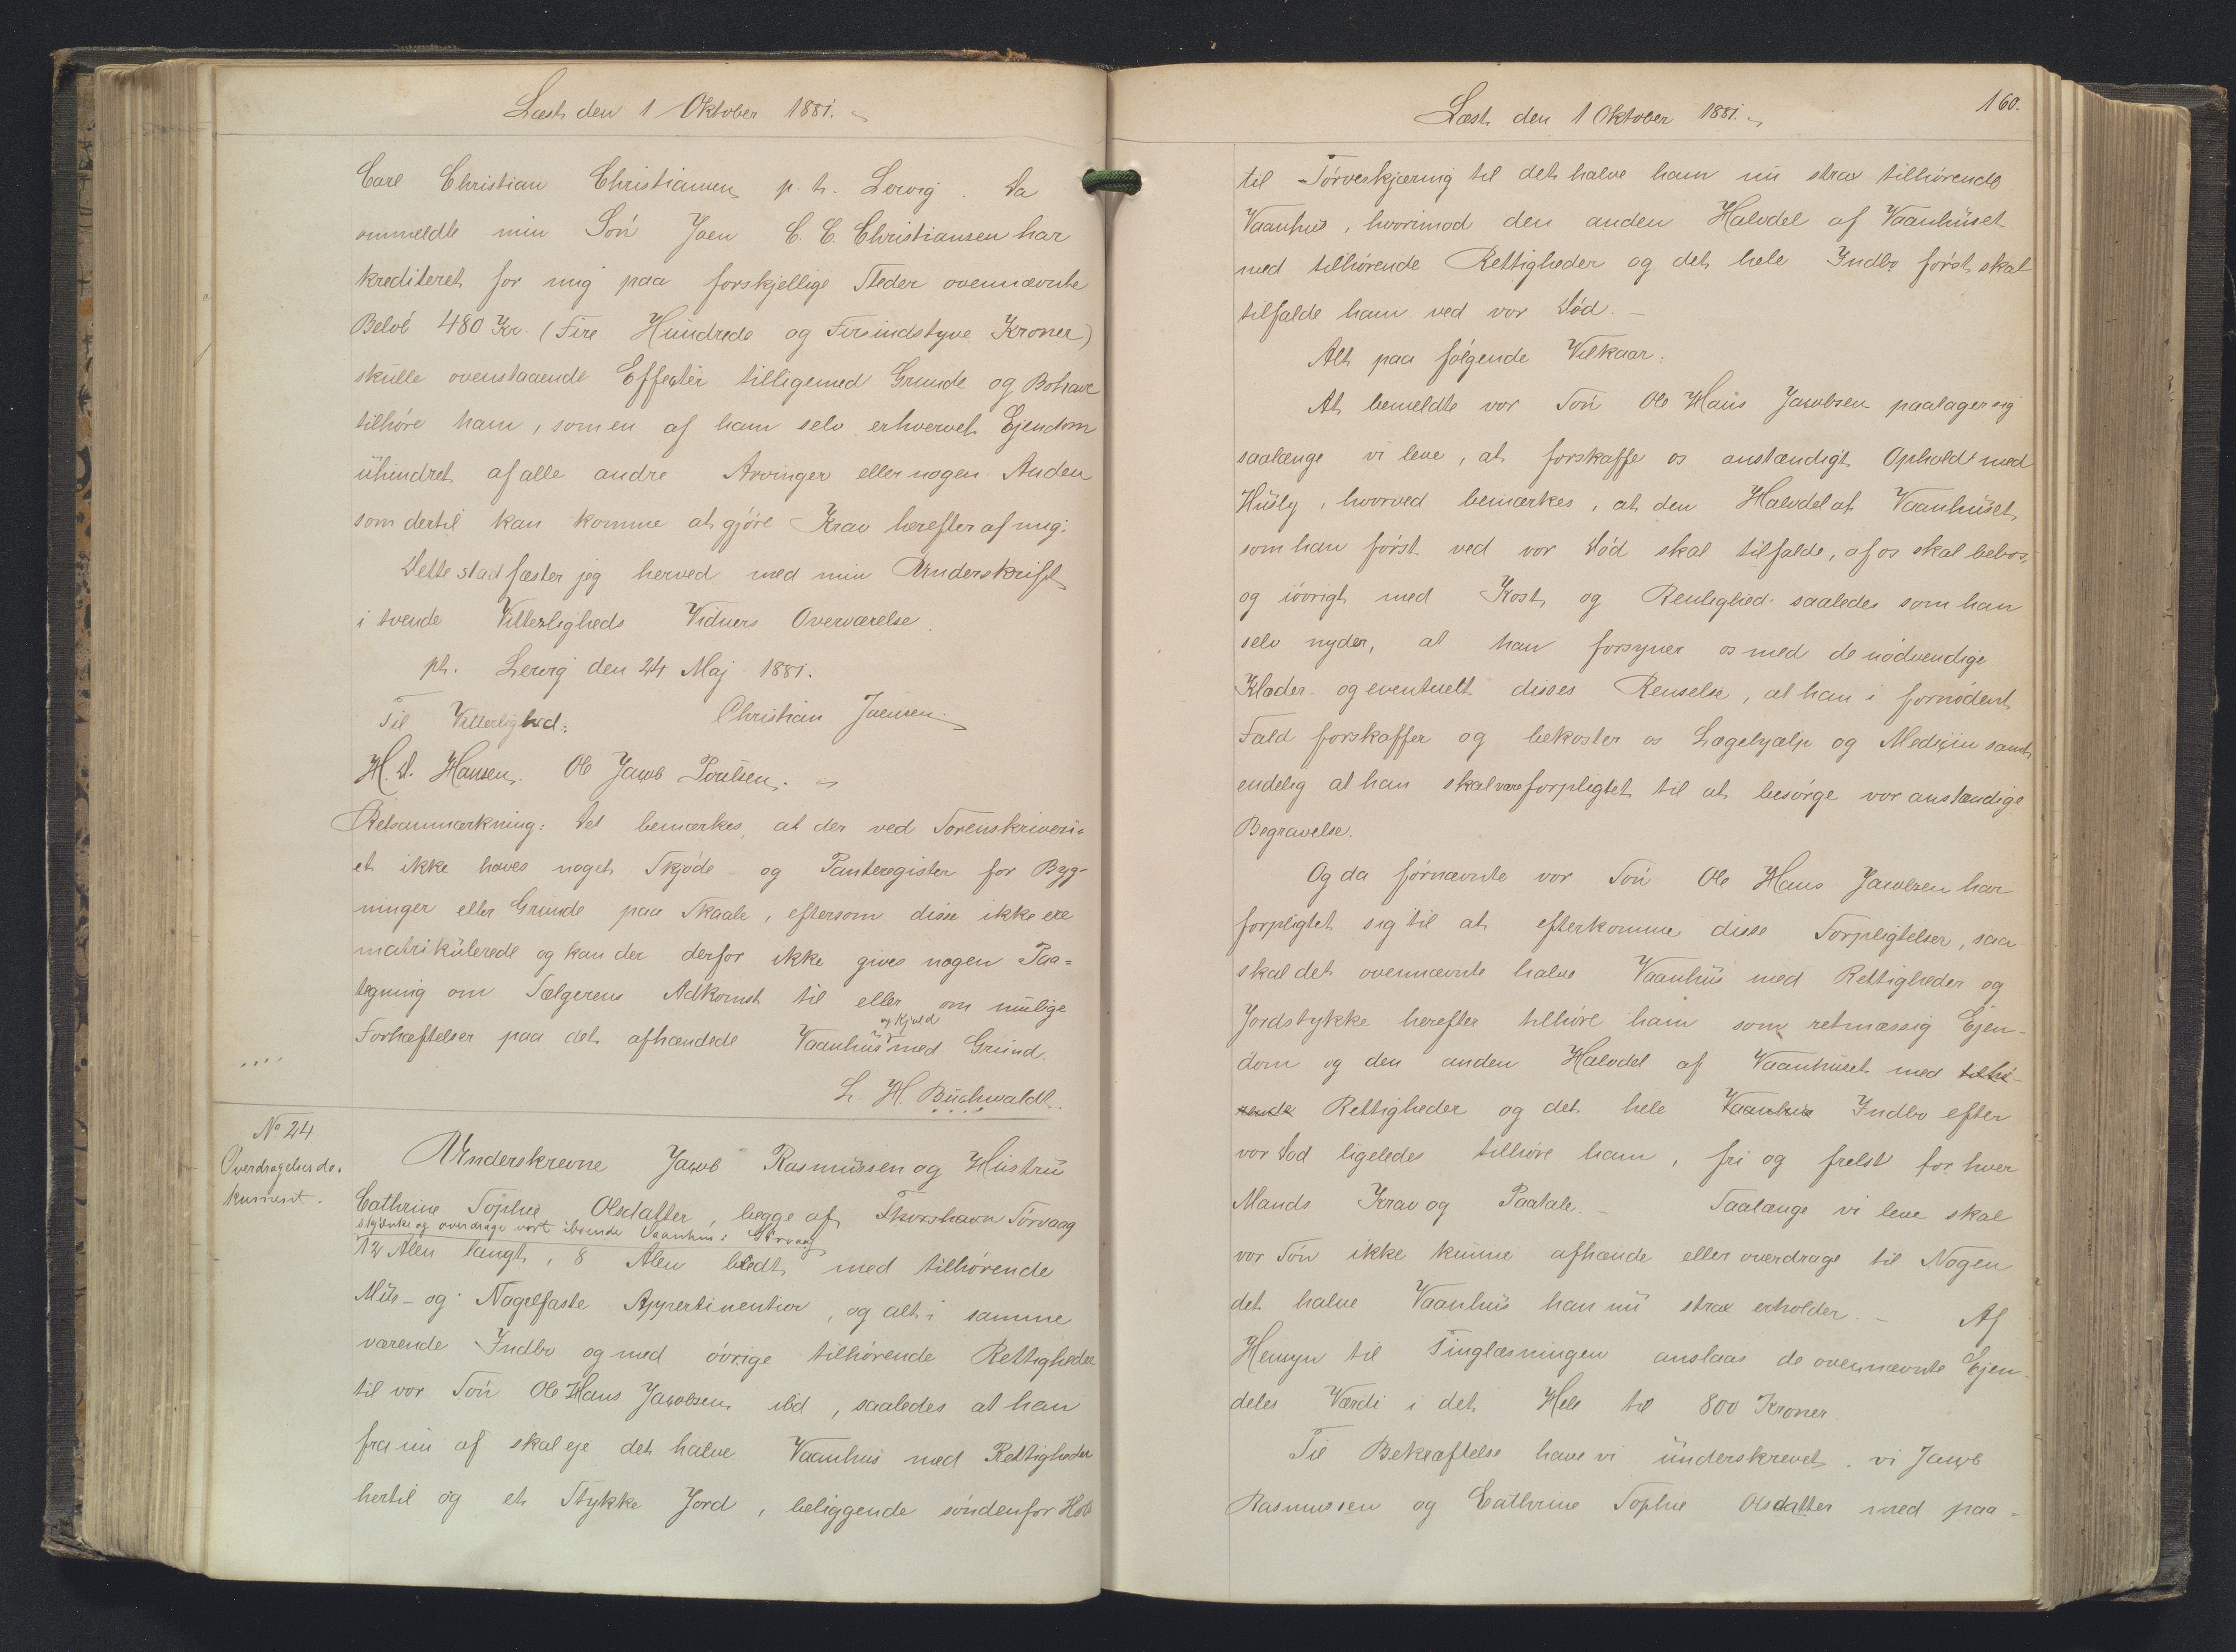 Læst den 1 Oktober 1881.
Carl Christian Christiansen p. t. Lervig. Da
ommeldte min Søn Joen C. C. Christiansen har
krediteret for mig paa forskjellige Steder ovennævnte
Beløb 480 Kr. (Fire Hundrede og Firsindstyve Kroner)
skulle ovenstaaende Effecter tilligemed Grunde og Bohave
tilhøre ham, som en af ham selv erhvervet Ejendom
uhindret af alle andre Arvinger eller nogen Anden
som dertil kan komme at gjøre Krav herefter af mig.
Dette stadfæster jeg herved med min Underskrift
i tvende Vitterligheds Vidners Overværelse.
pt. Lervig den 24 Maj 1881.
Til Vitterlighed: Christian Joensen.
H. D. Hansen. Ole Jacob Poulsen.
Retsanmærkning: Det bemærkes, at der ved Sorenskriveri-
et ikke haves noget Skjøde- og Panteregister for Byg-
ninger eller Grunde paa Skaale, eftersom disse ikke ere
matrikulerede og kan der derfor ikke gives nogen Paa=
tegning om Sælgerens Adkomst til eller om mulige
og Kjeld
Forhæftelser paa det afhændede Vaanhus med Grund.
L. H. Buchwaldt.
No 24
Overdragelsesdo-
kument.
Underskrevne Jacob Rasmussen og Hustru
Cathrine Sophie Olsdatter, begge af Thorshavn Sørvaag
skjænke og overdrage vort iboende Vaanhus i Sørvaag
12 Alen langt, 8 Alen bredt med tilhørende
Mur- og Nagelfaste Appertinentier, og alt i samme
værende Indbo og med øvrige tilhørende Rettigheder
til vor Søn Ole Hans Jacobsen ibd, saaledes at han
fra nu af skal eje det halve Vaanhus med Rettigheder
hertil og et Stykke Jord, beliggende søndenfor
Læst den 1 Oktober 1881.
160.
til Tørveskjæring til det halve ham nu strax tilhørende
Vaanhus, hvorimod den anden Halvdel af Vaanhuset
med tilhørende Rettigheder og det hele Indbo først skal
tilfalde ham ved vor Død. –
Alt paa følgende Vilkaar:
At bemeldte vor Søn Ole Hans Jacobsen paatager sig
saalænge vi leve, at forskaffe os anstændigt Ophold med
Husly, hvorved bemærkes, at den Halvdel af Vaanhuset,
som han først ved vor Død skal tilfalde, af os skal beboes,
og iøvrigt med Kost og Renlighed saaledes som han
selv nyder, at han forsyner os med de nødvendige
Klæder og eventuelt disses Renselse, at han i fornødent
Fald forskaffer og bekoster os Lægehjælp og Medicin samt
endelig at han skal være forpligtet til at besørge vor anstændige
Begravelse.
Og da førnævnte vor Søn Ole Hans Jacobsen har
forpligtet sig til at efterkomme disse Forpligtelser, saa
skal det ovennævnte halve Vaanhus med Rettigheder og
Jordstykke herefter tilhøre ham som retmæssig Ejen-
dom og den anden Halvdel af Vaanhuset med tilhø-
rende Rettigheder og det hele Vaanhus Indbo efter
vor Død ligeledes tilhøre ham, fri og frelst for hver
Mands Krav og Paatale. – Saalænge vi leve skal
vor Søn ikke kunne afhænde eller overdrage til Nogen
det halve Vaanhus han nu strax erholder. – Af
Hensyn til Tinglæsningen anslaas de ovennævnte Ejen-
deles Værdi i det Hele til 800 Kroner.
Til Bekræftelse have vi underskrevet, vi Jacob
Rasmussen og Cathrine Sophie Olsdatter med paa=